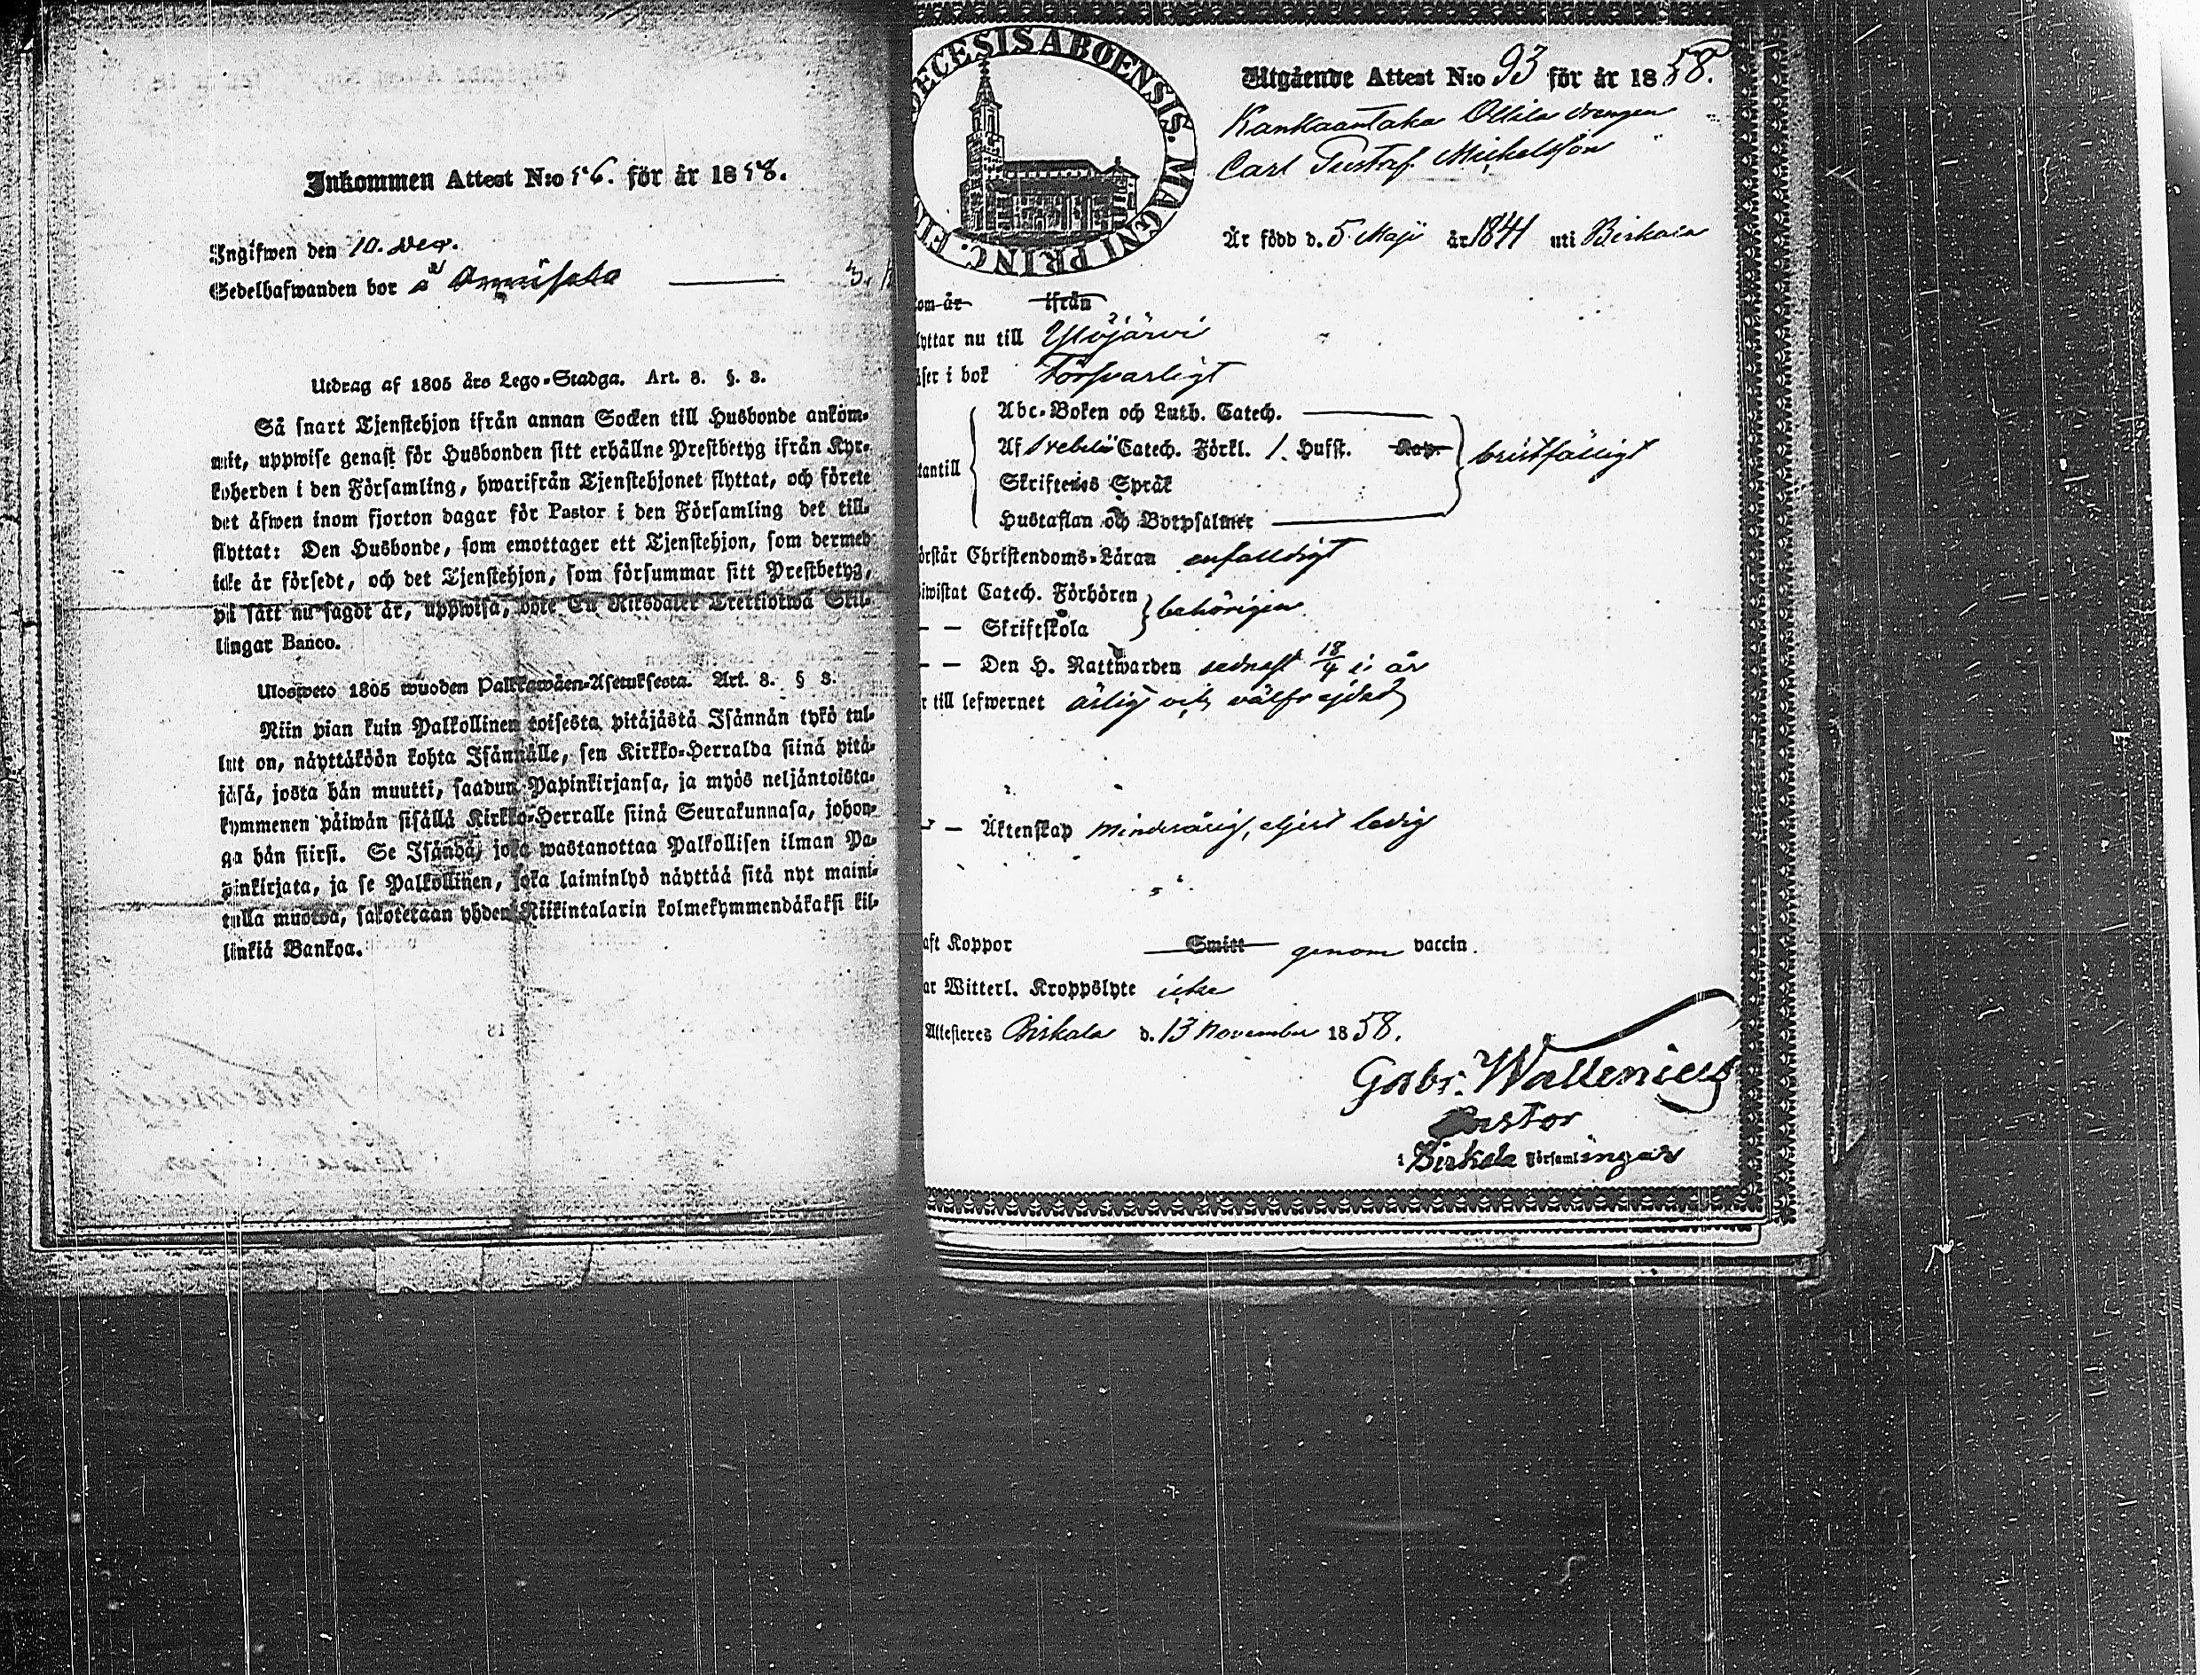 Inkommen Attest N:o 56. för år 1858.
Ingifwen den 10. Dec.
Sedelhafwanden bor å Annisala
Utdrag af 1805 års Lego-Stadga. Art. 8. §. 8.
Så snart Tjenstehjon ifrån annan Socken till Husbonde ankom-
mit, uppwise genast för Husbonden sitt erhållne Prestbetyg ifrån Kyr-
koherden i den Församling, hwarifrån Tjenstehjonet flyttat, och förete
det äfwen inom fjorton dagar för Pastor i den Församling det till-
flyttat: Den Husbonde, som emottager ett Tjenstehjon, som dermed
icke är försedt, och det Tjenstehjon, som försummar sitt Prestbetyg,
på sätt nu sagdt är, uppwisa, böte En Riksdaler Trettiotwå Skil-
lingar Banco.
Ulosweto 1805 wuoden Palkkawäen-Asetuksesta. Art. 8. § 8.
Niin pian kuin Palkollinen toisesta pitäjästä Isännän tykö tul-
lut on, näyttäköön kohta Isännälle, sen Kirkko-Herralda siinä pitä-
jäsä, josta hän muutti, saadun Papinkirjansa, ja myös neljäntoista-
kymmenen päiwän sisällä Kirkko-Herralle siinä Seurakunnasa, johon-
ga hän siirsi. Se Isändä, joka wastanottaa Palkollisen ilman Pa-
pinkirjata, ja se Palkollinen, joka laiminlyö näyttää sitä nyt maini-
tulla muotoa, sakotetaan yhden Riikintalarin kolmekymmendäkaksi kil-
linkiä Bankoa.
ECESIS ABOENSIS. MAGNI PRINC. FIN
Utgående Attest N:o 93 för år 1858.
Kankaantaka Ollila drengen
Carl Gustaf Michelsson
Är född d. 5 Maji år 1841 uti Birkala
om år ifrån
lyttar nu till Ylöjärwi
äser i bok Försvarligt
Abc-Boken och Luth. Catech.
Af Svebelii Catech. Förkl. 1. Hufst. Kap.
tantill bristfälligt
Skriftenes Språk
Hustaflan och Botpsalmer
örstår Christendoms-Läran enfaldigt
iwistat Catech. Förhören behörigen
– – Skriftskola
– – Den H. Nattwarden sednast 18/4 i år
r till lefwernet ärlig och välfrejdad
– Äktenskap minderårig, eljest ledig
aft Koppor Smitt genom vaccin.
ar Witterl. Kroppslyte icke
Attesteres Birkala d. 13 November 1858.
Gabr. Wallenius
Pastor
i Birkala Församlingar